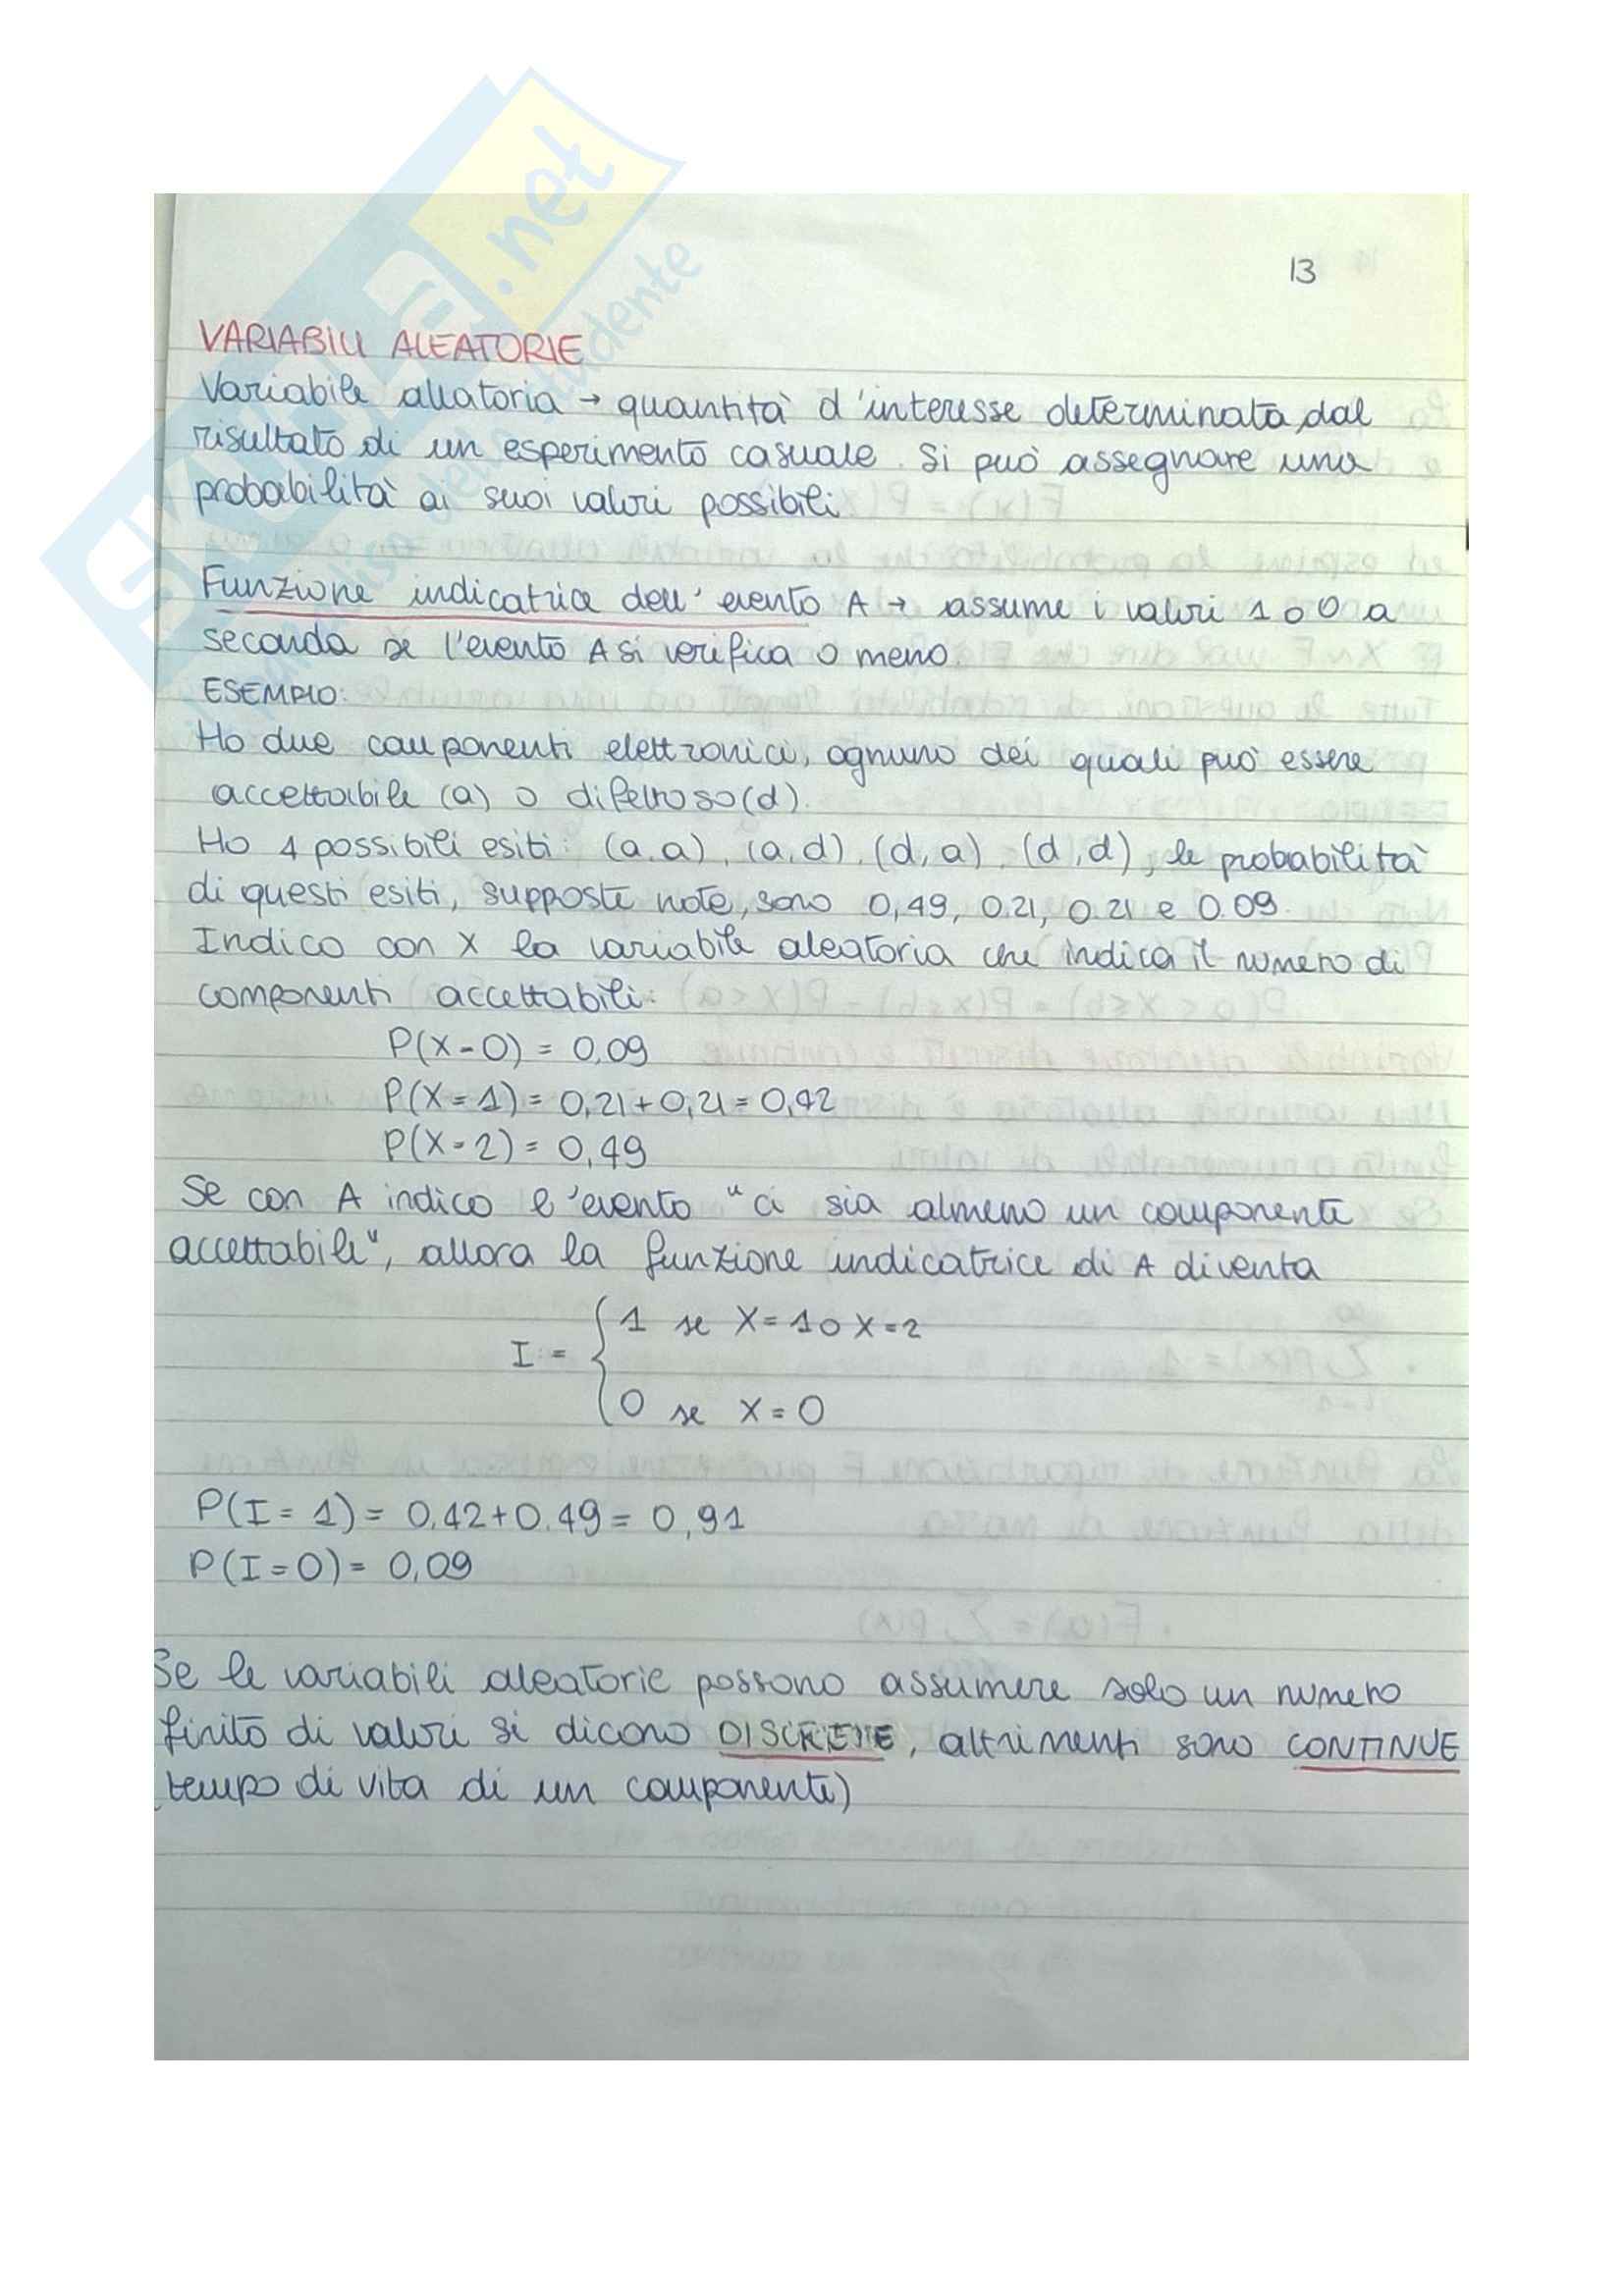 13
VARIABILI ALEATORIE
Variabile aleatoria → quantità d'interesse determinata dal
risultato di un esperimento casuale. Si può assegnare una
probabilità ai suoi valori possibili
Funzione indicatrice dell'evento A → assume i valori 1 o 0 a
seconda se l'evento A si verifica o meno.
ESEMPIO:
Ho due componenti elettronici, ognuno dei quali può essere
accettabile (a) o difettoso (d).
Ho 4 possibili esiti: (a,a), (a,d), (d,a), (d,d), le probabilità
di questi esiti, supposte note, sono 0,49, 0.21, 0.21 e 0.09.
Indico con X la variabile aleatoria che indica il numero di
componenti accettabili:
P(X=0) = 0,09
P(X=1) = 0,21+0,21 = 0,42
P(X=2) = 0,49
Se con A indico l'evento "ci sia almeno un componente
accettabile", allora la funzione indicatrice di A diventa
I := { 1 se X=1 o X=2
0 se X=0
P(I=1) = 0.42+0.49 = 0,91
P(I=0) = 0,09
Se le variabili aleatorie possono assumere solo un numero
finito di valori si dicono DISCRETE, altrimenti sono CONTINUE
(tempo di vita di un componente)
SKUOLA.net
il paradiso dello studente